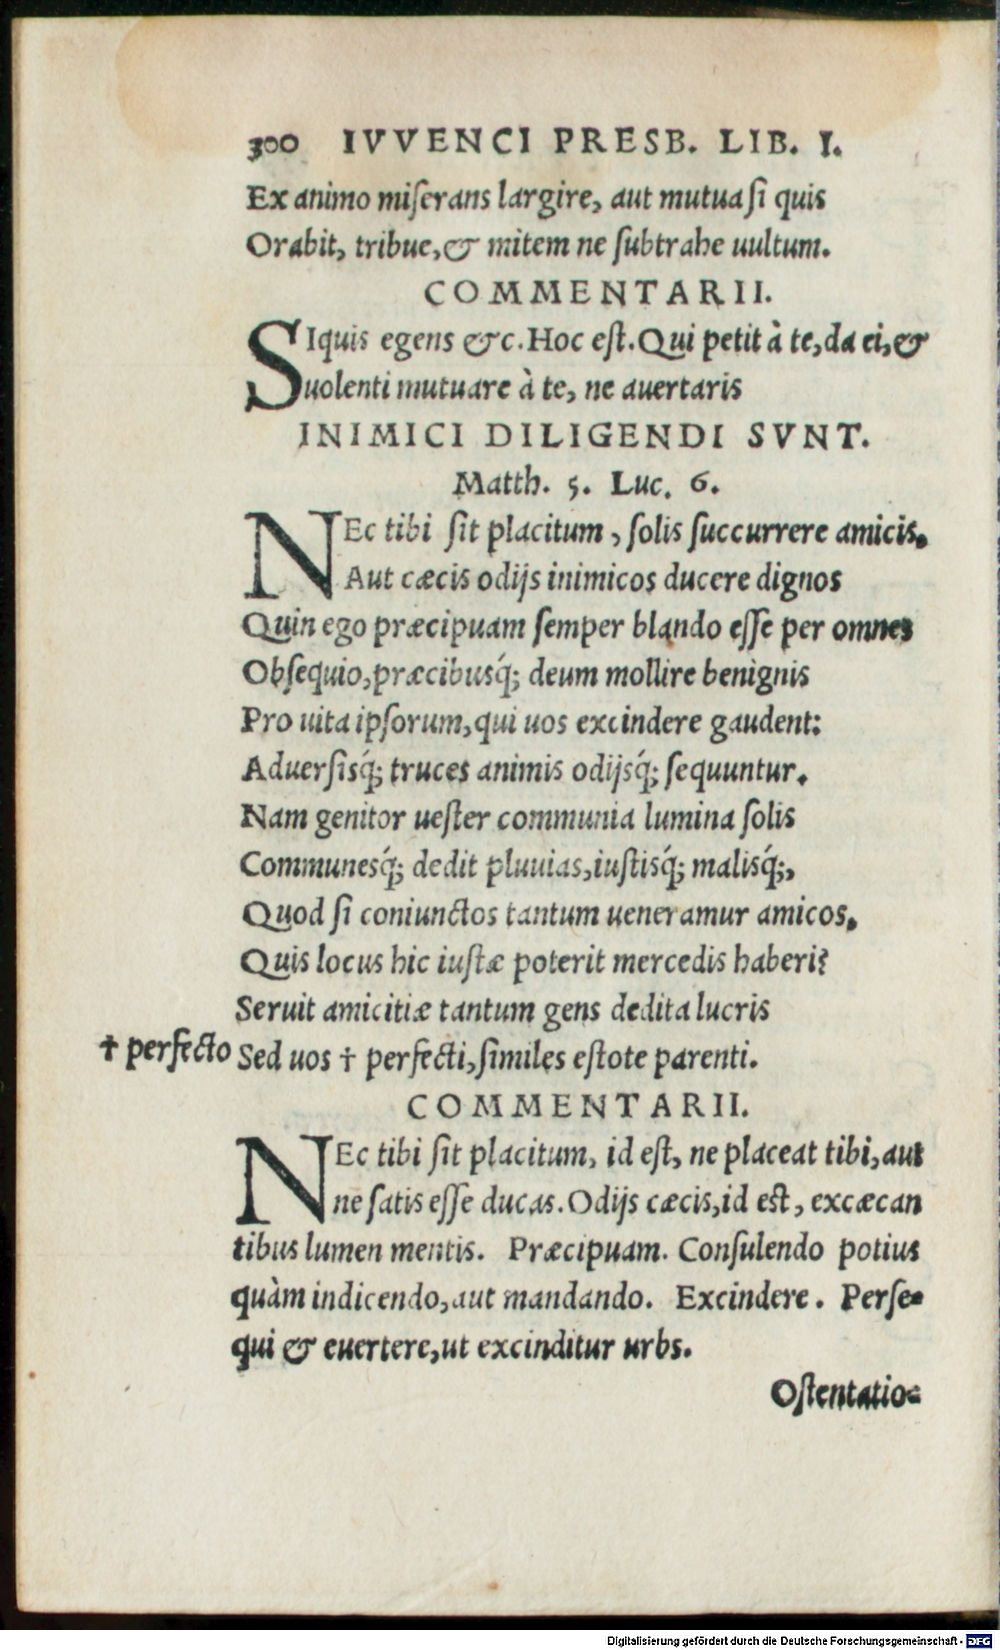 300 IVVENCI PRESB. LIB. I.
Ex animo miſerans largire, aut mutua ſi quis
Orabit, tribue, & mitem ne ſubtrahe uultum.
COMMENTARII.
SIquis egens &c. Hoc eſt. Qui petit à te, da ei, &
uolenti mutuare à te, ne auertaris
INIMICI DILIGENDI SVNT.
Matth. 5. Luc. 6.
NEc tibi ſit placitum, ſolis ſuccurrere amicis.
Aut cæcis odijs inimicos ducere dignos
Quin ego præcipuam ſemper blando eſſe per omnes
Obſequio, præcibusq́; deum mollire benignis
Pro uita ipſorum, qui uos excindere gaudent:
Aduerſisq́; truces animis odijsq́; ſequuntur.
Nam genitor ueſter communia lumina ſolis
Communesq́; dedit pluuias, iuſtisq́; malisq́;,
Quod ſi coniunctos tantum ueneramur amicos.
Quis locus hic iuſtæ poterit mercedis haberi?
Seruit amicitiæ tantum gens dedita lucris
† perfecto Sed uos † perfecti, ſimiles eſtote parenti.
COMMENTARII.
NEc tibi ſit placitum, id eſt, ne placeat tibi, aut
ne ſatis eſſe ducas. Odijs cæcis, id est, excæcan
tibus lumen mentis. Præcipuam. Conſulendo potius
quàm indicendo, aut mandando. Excindere. Perſe-
qui & euertere, ut excinditur urbs.
Oſtentatio-
Digitalisierung gefördert durch die Deutsche Forschungsgemeinschaft - DFG